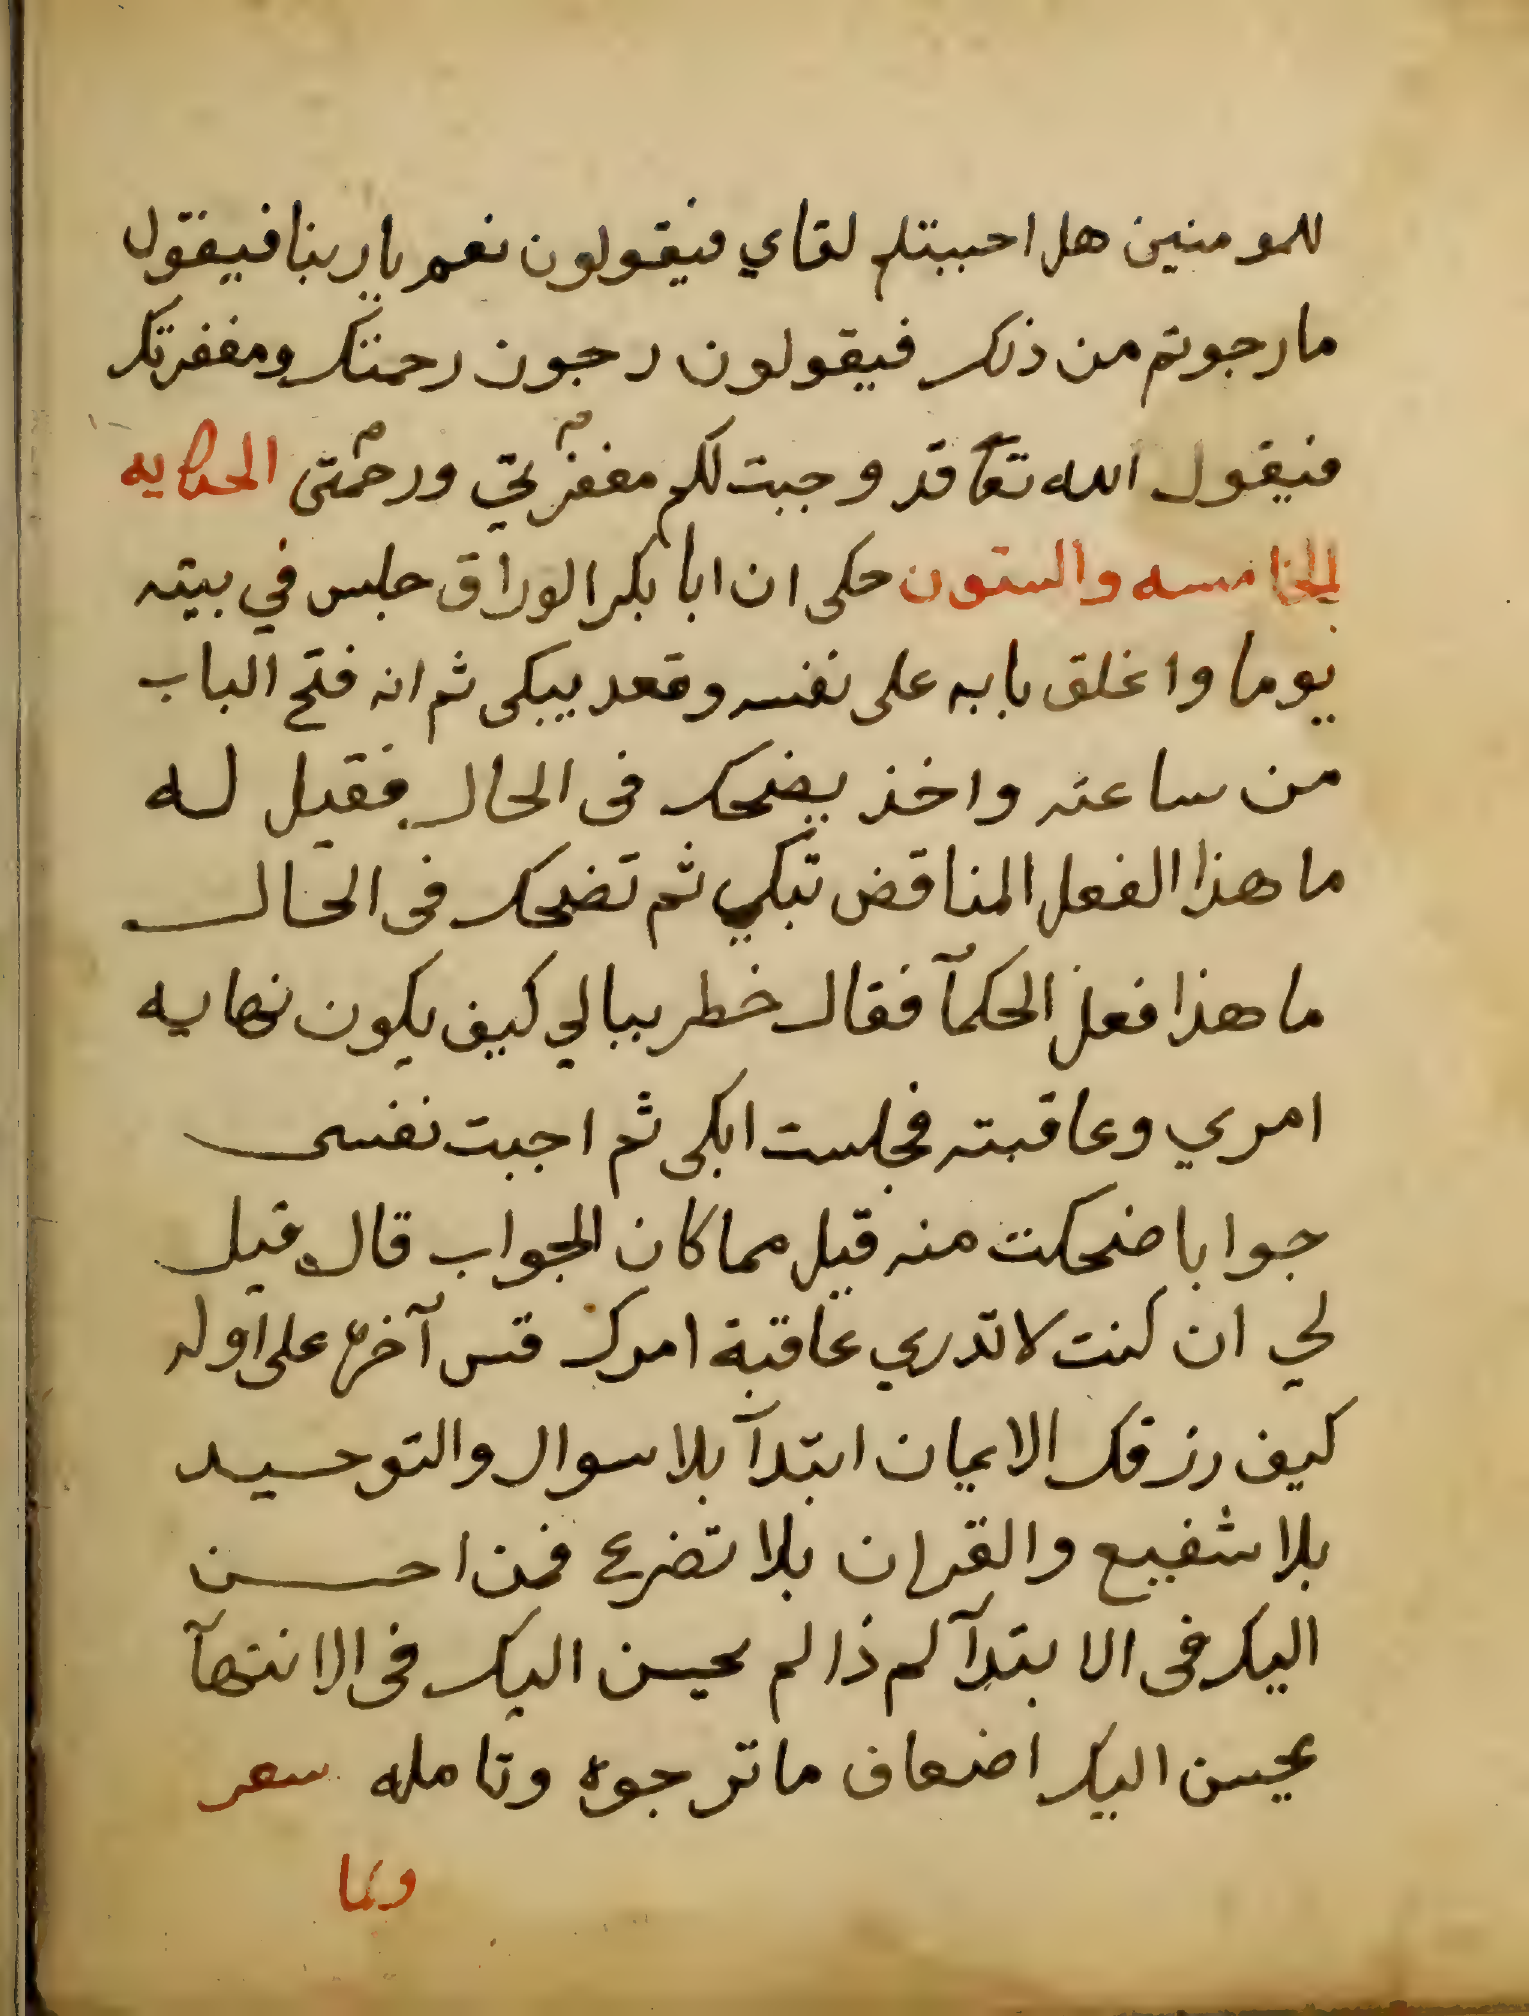 للمومنين هل احببتلم لقاي فيقولون نعم يا ربنا فيقول
ما رجوتم من ذلك فيقولون رجون رحمتك ومغفرتك
فيقول الله تعا قد وجبت لكم مغفرتي ورحمتي الحكايه
الخامسه والستون حكى ان ابا بكر الوراق جلس في بيته
يوما واغلق بابه على نفسه وقعد يبكى ثم انه فتح الباب
من ساعته واخذ يضحك فى الحال فقيل له
ما هذا الفعل المناقض تبكي ثم تضحك فى الحال
ما هذا فعل الحكمآ فقال خطر ببالي كيف يكون نهايه
امري وعاقبته فجلست ابكى ثم اجبت نفسى
جوابا ضحكت منه قيل مما كان الجواب قال قيل
لي ان كنت لا تدري عاقبة امرك قس آخره على اوله
كيف رزقك الايمان ابتدآ بلا سوال والتوحيد
بلا شفيع والقران بلا تضرع فمن احسن
اليك فى الابتدآ لم ذا لم يحسن اليك فى الانتهآ
يحسن اليك اضعاف ما ترجوه وتامله سعر
ولما